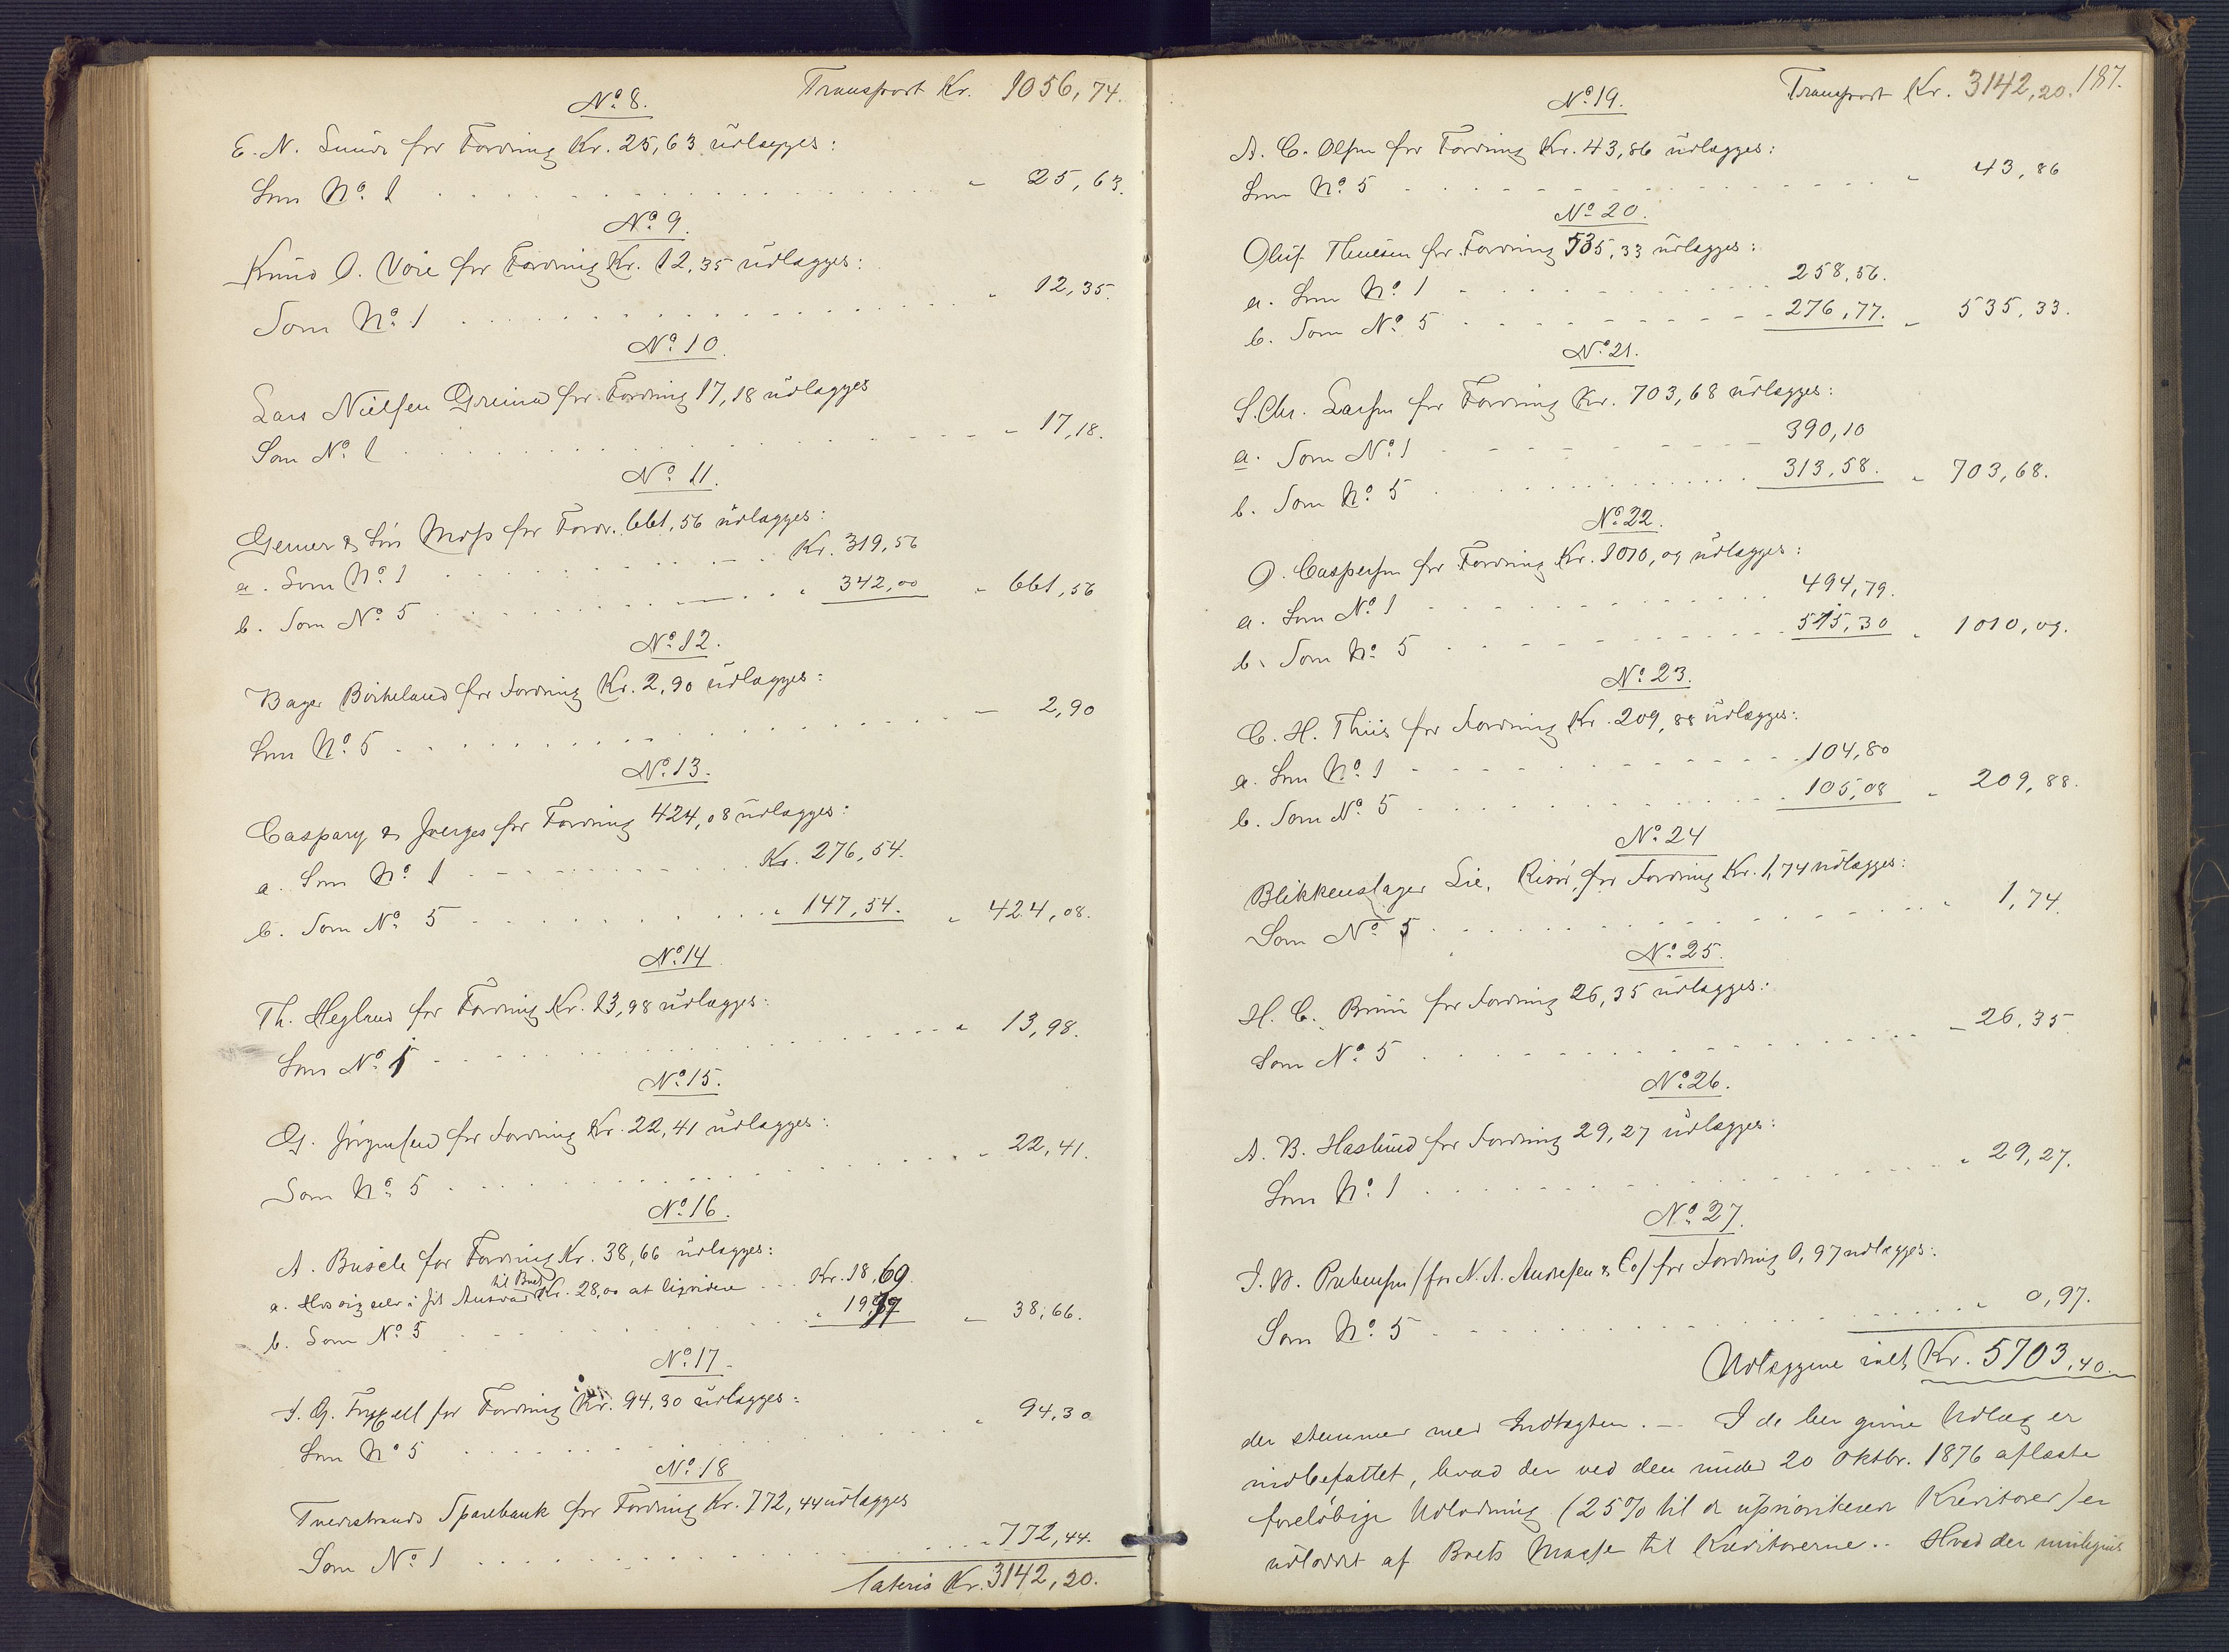 Transport Kr. 1056,74.
No. 8.
E. N. Sunde for Fordring Kr. 25,63 udlægges:
Som No. 1 " 25,63.
No. 9.
Knud O. Voie for Fordring Kr. 12,35 udlægges:
Som No. 1 " 12,35.
No. 10.
Lars Nielsen Greina for Fordring 17,18 udlægges
Som No. 1 " 17,18.
No. 11.
Gerner & Søn Moss for Fordr. 661,56 udlægges:
a. Som No. 1 Kr. 319,56
b. Som No. 5 " 342,00 " 661,56
No. 12.
Bager Birkeland for Fordring Kr. 2,90 udlægges:
Som No. 5 — 2,90
No. 13.
Caspary & Joerges for Fordring 424,08 udlægges:
a. Som No. 1 Kr. 276,54.
b. Som No. 5 " 147,54. " 424,08.
No. 14
Th. Hegland for Fordring Kr. 13,98 udlægges:
Som No. 5 " 13,98.
No. 15.
G. Jørgensen for Fordring Kr. 22,41 udlægges:
Som No. 5 " 22,41.
No. 16.
A. Busch for Fordring Kr. 38,66 udlægges:
a. Hos sig selv i sit Ansvar til Boet Kr. 28,00 at liqvidere Kr. 18,69.
b. Som No. 5 " 19,97 " 38,66.
No. 17.
J. G. Fryxell for Fordring Kr. 94,30 udlægges:
Som No. 5 " 94,30
No. 18
Tvedestrands Sparebank for Fordring Kr. 772,44 udlægges
Som No. 1 " 772,44.
lateris Kr. 3142,20.
Transport Kr. 3142,20. 187.
No. 19.
A. C. Olsen for Fordring Kr. 43,86 udlægges:
Som No. 5 " 43,86
No. 20.
Oluf Thuesen for Fordring 535,33 udlægges:
a. Som No. 1 258,56.
b. Som No. 5 276,77. " 535,33.
No. 21.
S. Chr. Larsen for Fordring Kr. 703,68 udlægges:
a. Som No. 1 390,10
b. Som No. 5 313,58. " 703,68.
No. 22.
O. Caspersen for Fordring Kr. 1010,09 udlægges:
a. Som No. 1 494,79.
b. Som No. 5 515,30 " 1010,09.
No. 23.
C. H. Thiis for Fordring Kr. 209,88 udlægges:
a. Som No. 1 104,80
b. Som No. 5 105,08 " 209,88.
No. 24
Blikkenslager Lie, Risør, for Fordring Kr. 1,74 udlægges:
Som No. 5 " 1,74.
No. 25.
H. C. Bruu for Fordring 26,35 udlægges:
Som No. 5 — 26,35
No. 26.
A. B. Haslund for Fordring 29,27 udlægges:
Som No. 1 " 29,27.
No. 27.
J. N. Prebensen /for N. A. Andresen & Co/ for Fordring 0,97 udlægges:
Som No. 5 " 0,97.
Udlæggene ialt Kr. 5703,40.
der stemmer med Indtægten. — I de her givne Udlæg er
indbefattet, hvad der ved den under 20 Oktbr. 1876 aflagte
foreløbige Udlodning (25% til de uprioriterede Kreditorer) er
udloddet af Boets Masse til Kreditorerne. Hvad der